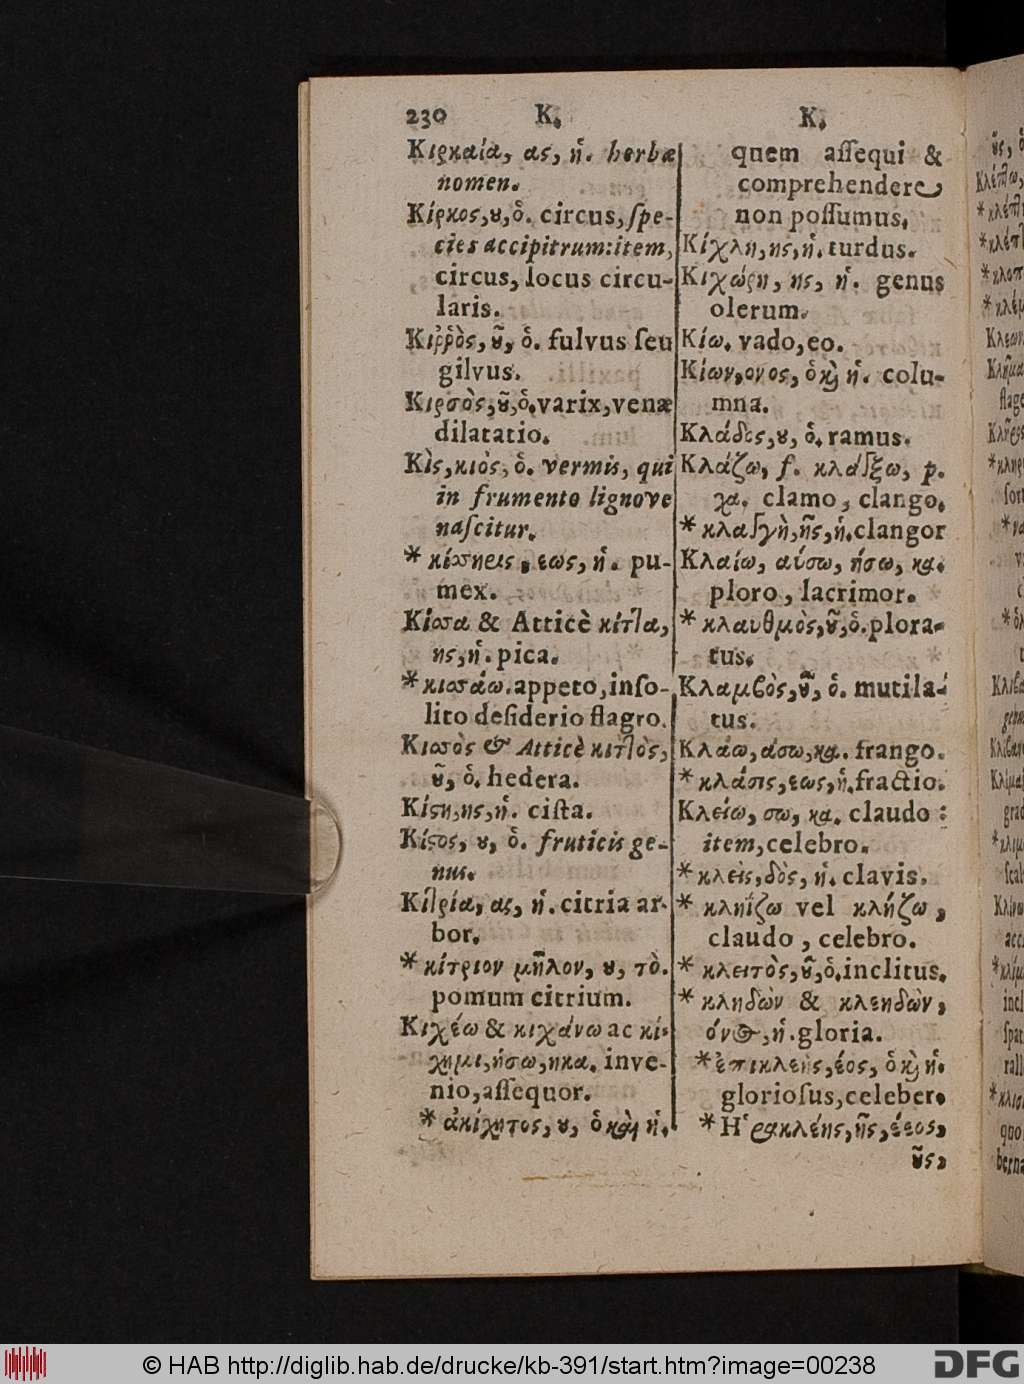 230 K. K.
Κιρκαία, ας, ἡ. herbæ
nomen.
Κίρκος, ου, ὁ. circus, ſpe-
cies accipitrum: item,
circus, locus circu-
laris.
Κιῤῥὸς, οῦ, ὁ. fulvus ſeu
gilvus.
Κιρσὸς, οῦ, ὁ. varix, venæ
dilatatio.
Κὶς, κιὸς, ὁ. vermis, qui
in frumento lignove
naſcitur.
* κίσσηρις, εως, ἡ. pu-
mex.
Κίσσα & Atticè κίττα,
ης, ἡ. pica.
* κισσάω. appeto, inſo-
lito deſiderio flagro.
Κισσὸς & Atticè κιττὸς,
οῦ, ὁ. hedera.
Κίστη, ης, ἡ. ciſta.
Κίστος, ου, ὁ. fruticis ge-
nus.
Κιτρία, ας, ἡ. citria ar-
bor.
* κίτριον μῆλον, ου, τὸ.
pomum citrium.
Κιχέω & κιχάνω ac κί-
χημι, ήσω, ηκα. inve-
nio, aſſequor.
* ἀκίχητος, ου, ὁ καὶ ἡ.
quem aſſequi &
comprehendere
non poſſumus.
Κίχλη, ης, ἡ. turdus.
Κιχώρη, ης, ἡ. genus
olerum.
Κίω. vado, eo.
Κίων, ονος, ὁ καὶ ἡ. colu-
mna.
Κλάδος, ου, ὁ. ramus.
Κλάζω, f. κλάγξω, p.
χα. clamo, clango.
* κλαγγὴ, ῆς, ἡ. clangor
Κλαίω, αύσω, ήσω, κα.
ploro, lacrimor.
* κλαυθμὸς, οῦ, ὁ. plora-
tus.
Κλαμβὸς, οῦ, ὁ. mutila-
tus.
Κλάω, άσω, κα. frango.
* κλάσις, εως, ἡ. fractio.
Κλείω, σω, κα. claudo :
item, celebro.
* κλεὶς, δὸς, ἡ. clavis.
* κληΐζω vel κλήζω,
claudo, celebro.
* κλειτὸς, οῦ, ὁ. inclitus.
* κληδὼν & κλεηδὼν,
όνος, ἡ. gloria.
* ἐπικλεὴς, έος, ὁ καὶ ἡ.
glorioſus, celeber.
* Ἡρακλέης, ῆς, έεος,
οῦς,
© HAB http://diglib.hab.de/drucke/kb-391/start.htm?image=00238
DFG